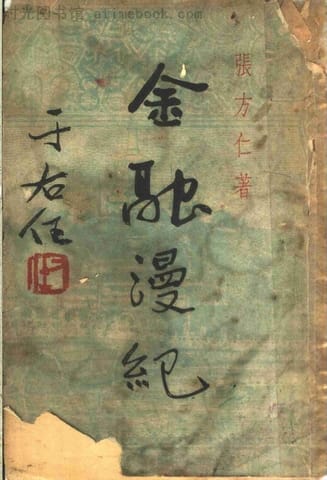 时光图书馆 - atimebook.com
張方仁著
金融漫紀
于右任